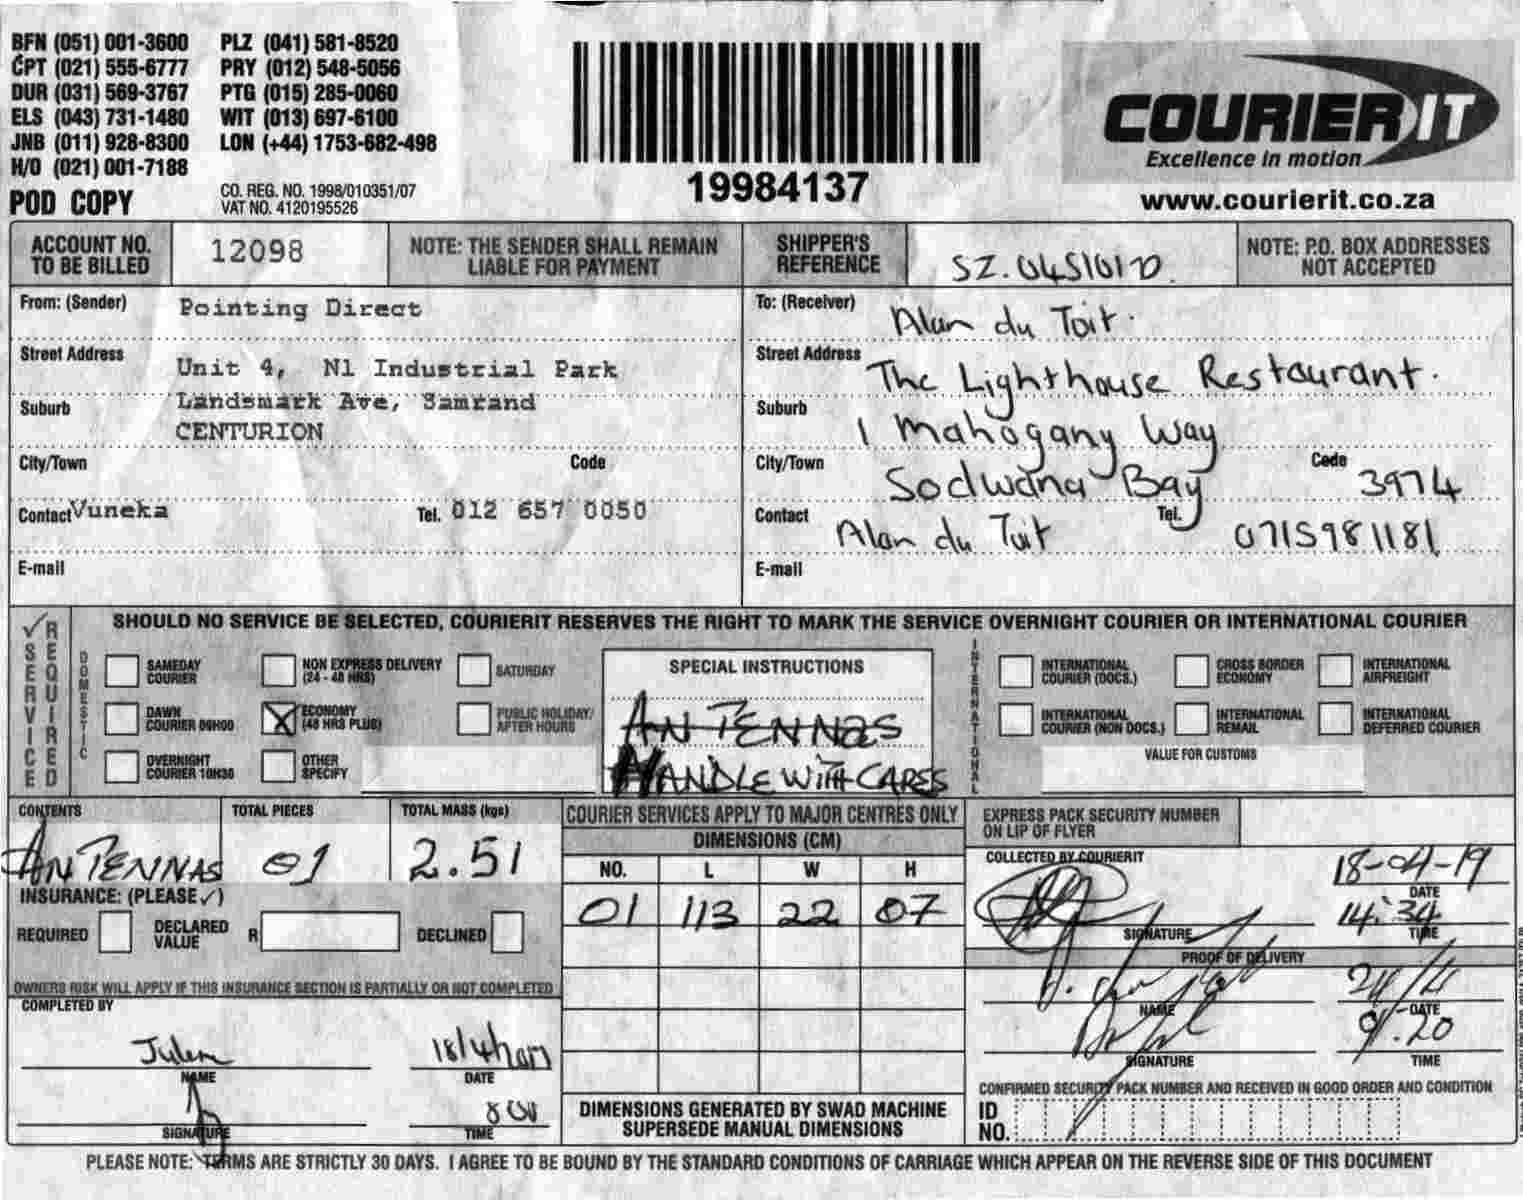 BFN (051) 001-3600 PLZ (041) 581-8520
CPT (021) 555-6777 PRY (012) 548-5056
DUR (031) 569-3767 PTG (015) 285-0060
ELS (043) 731-1480 WIT (013) 697-6100
JNB (011) 928-8300 LON (+44) 1753-682-498
H/O (021) 001-7188
POD COPY
CO. REG. NO. 1998/010351/07
VAT NO. 4120195526
19984137
COURIER IT
Excellence in motion
www.courierit.co.za
ACCOUNT NO. TO BE BILLED
12098
NOTE: THE SENDER SHALL REMAIN LIABLE FOR PAYMENT
SHIPPER'S REFERENCE
NOTE: P.O. BOX ADDRESSES NOT ACCEPTED
From: (Sender) Pointing Direct
Street Address Unit 4, N1 Industrial Park
Suburb Landsmark Ave, Samrand
CENTURION
City/Town Code
Contact Vuneka Tel. 012 657 0050
E-mail
To: (Receiver) Alan du Toit.
Street Address The Lighthouse Restaurant.
Suburb 1 Mahogany Way
City/Town Sodwana Bay Code 3974
Contact Alan du Toit Tel. 0715981181
E-mail
✓ SERVICE REQUIRED
SHOULD NO SERVICE BE SELECTED, COURIERIT RESERVES THE RIGHT TO MARK THE SERVICE OVERNIGHT COURIER OR INTERNATIONAL COURIER
DOMESTIC
SAMEDAY COURIER
NON EXPRESS DELIVERY (24 - 48 HRS)
SATURDAY
DAWN COURIER 09H00
X ECONOMY (48 HRS PLUS)
PUBLIC HOLIDAY/ AFTER HOURS
OVERNIGHT COURIER 10H30
OTHER SPECIFY
SPECIAL INSTRUCTIONS
ANTENNAS
HANDLE WITH CARES
INTERNATIONAL
INTERNATIONAL COURIER (DOCS.)
CROSS BORDER ECONOMY
INTERNATIONAL AIRFREIGHT
INTERNATIONAL COURIER (NON DOCS.)
INTERNATIONAL REMAIL
INTERNATIONAL DEFERRED COURIER
VALUE FOR CUSTOMS
CONTENTS TOTAL PIECES TOTAL MASS (kgs)
ANTENNAS 01 2.51
INSURANCE: (PLEASE ✓)
REQUIRED DECLARED VALUE R DECLINED
OWNERS RISK WILL APPLY IF THIS INSURANCE SECTION IS PARTIALLY OR NOT COMPLETED
COMPLETED BY
NAME DATE
SIGNATURE TIME
COURIER SERVICES APPLY TO MAJOR CENTRES ONLY
DIMENSIONS (CM)
NO. L W H
01 113 22 07
DIMENSIONS GENERATED BY SWAD MACHINE
SUPERSEDE MANUAL DIMENSIONS
EXPRESS PACK SECURITY NUMBER ON LIP OF FLYER
COLLECTED BY COURIERIT 18-04-19
DATE
14:34
SIGNATURE TIME
PROOF OF DELIVERY
24/4
NAME DATE
9.20
SIGNATURE TIME
CONFIRMED SECURITY PACK NUMBER AND RECEIVED IN GOOD ORDER AND CONDITION
ID NO.
PLEASE NOTE: TERMS ARE STRICTLY 30 DAYS. I AGREE TO BE BOUND BY THE STANDARD CONDITIONS OF CARRIAGE WHICH APPEAR ON THE REVERSE SIDE OF THIS DOCUMENT